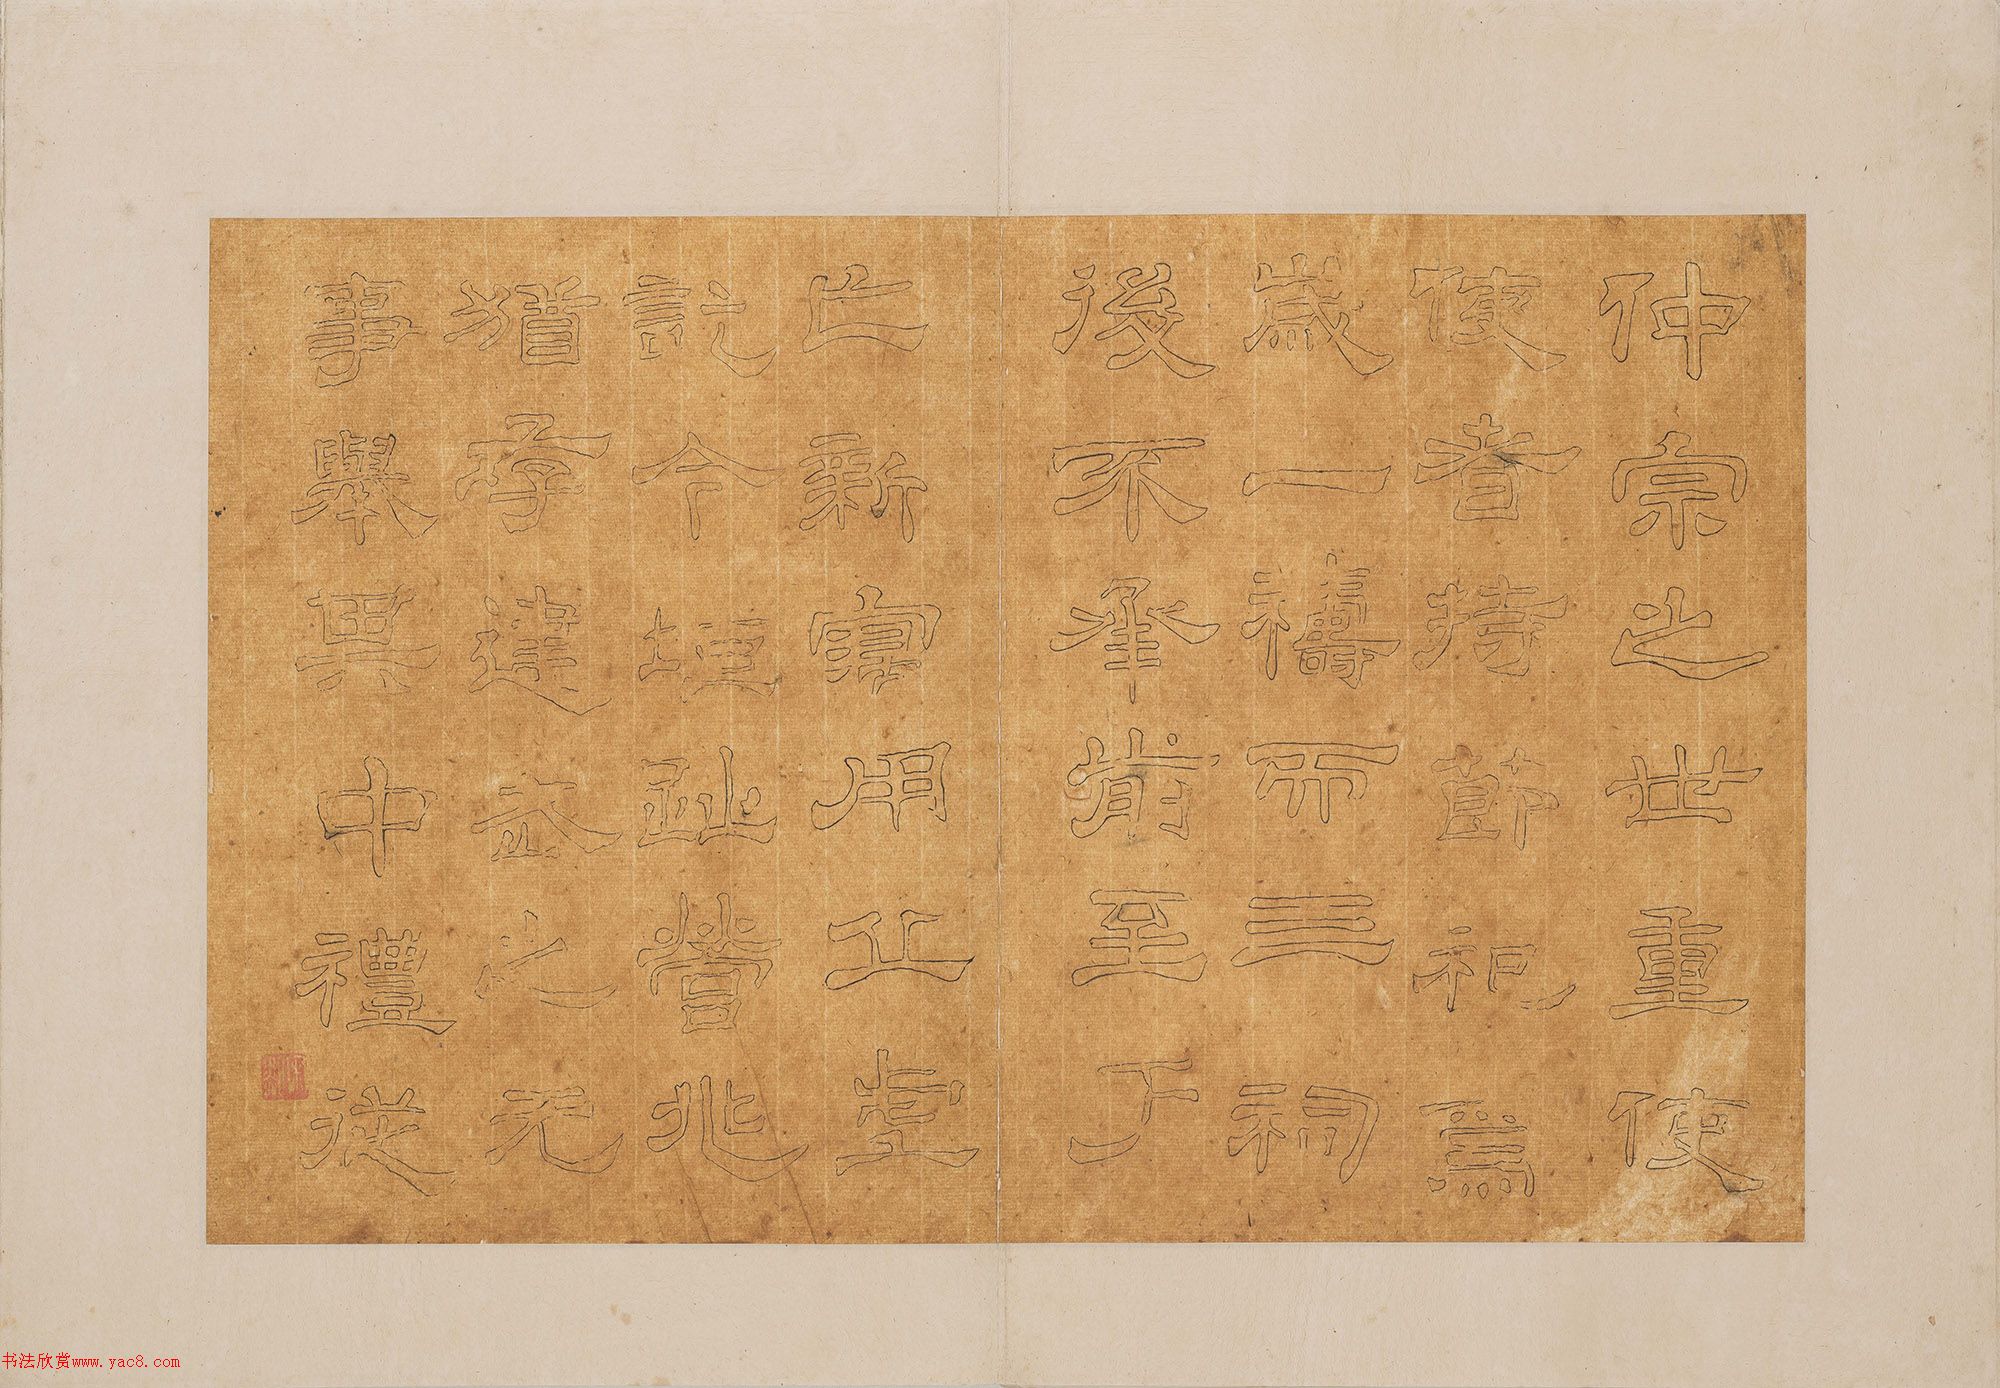 仲宗之世重使
使者持節祀焉
歲一禱而三祠
後不承前至于
亡新寖用丘虚
訖今垣趾營兆
猶存建武之元
事舉其中禮從
书法欣赏www.yac8.com